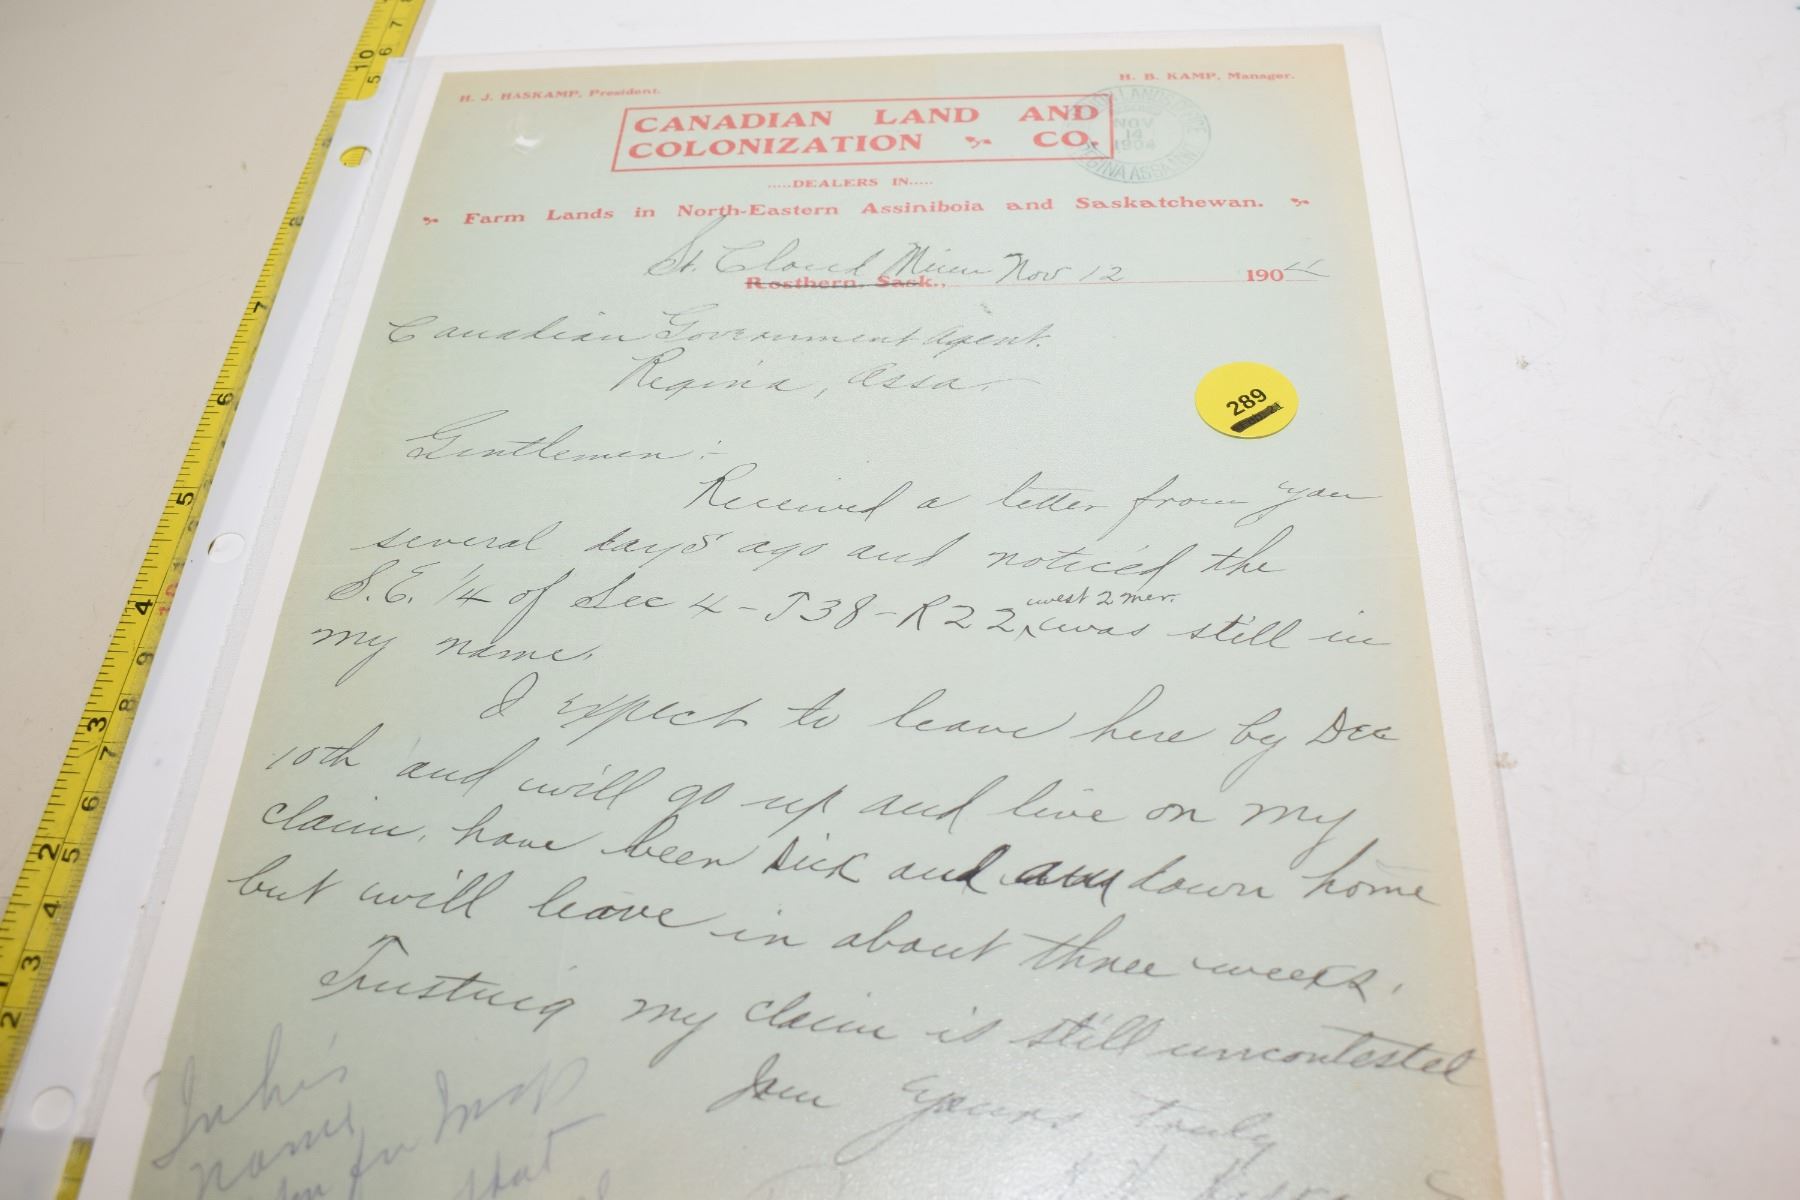 H. J. HASKAMP, President.
H. B. KAMP, Manager.
CANADIAN LAND AND
COLONIZATION CO.
NOV
14
1904
.....DEALERS IN.....
Farm Lands in North-Eastern Assiniboia and Saskatchewan.
St. Cloud Minn Nov 12
Rosthern, Sask., 1904
Canadian Government Agent.
Regina, Assa.
289
Gentlemen:-
Received a letter from you
several days ago and noticed the
S.E. 1/4 of Sec 4-T38-R22 west 2 mer. was still in
my name.
I expect to leave here by Dec
10th and will go up and live on my
claim, have been sick and am down home
but will leave in about three weeks.
Trusting my claim is still uncontested
I am Yours truly
In his
name
for Insp